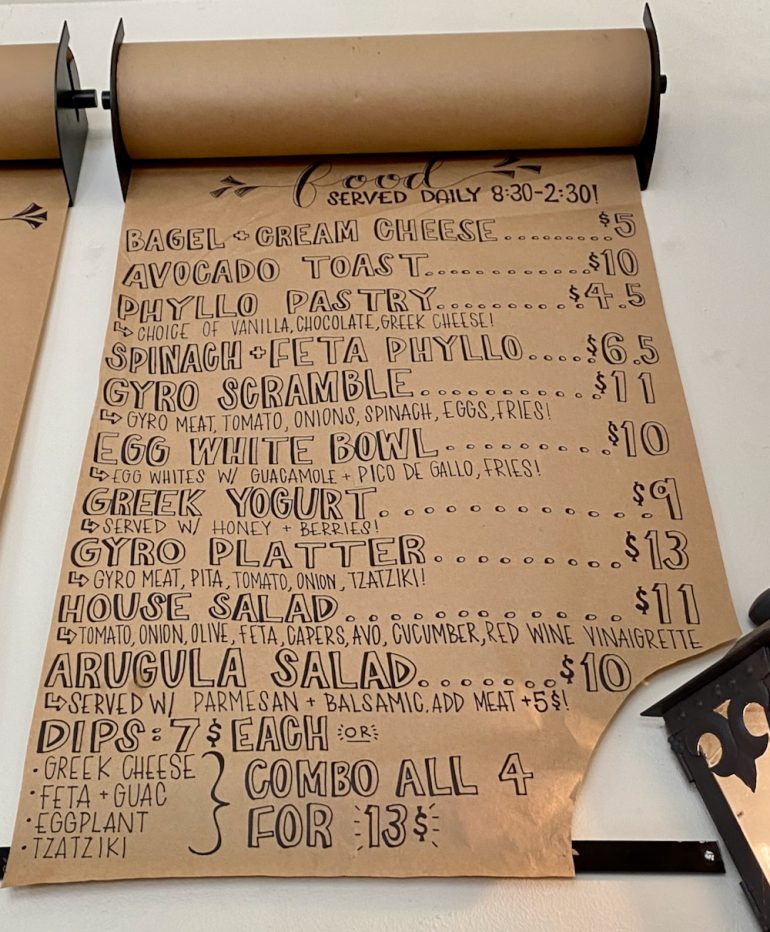 food
SERVED DAILY 8:30-2:30!
BAGEL + CREAM CHEESE.........$5
AVOCADO TOAST..............$10
PHYLLO PASTRY..........$4.5
↳ CHOICE OF VANILLA, CHOCOLATE, GREEK CHEESE!
SPINACH + FETA PHYLLO....$6.5
GYRO SCRAMBLE............$11
↳ GYRO MEAT, TOMATO, ONIONS, SPINACH, EGGS, FRIES!
EGG WHITE BOWL..........$10
↳ EGG WHITES W/ GUACAMOLE + PICO DE GALLO, FRIES!
GREEK YOGURT.............$9
↳ SERVED W/ HONEY + BERRIES!
GYRO PLATTER..........$13
↳ GYRO MEAT, PITA, TOMATO, ONION, TZATZIKI!
HOUSE SALAD............$11
↳ TOMATO, ONION, OLIVE, FETA, CAPERS, AVO, CUCUMBER, RED WINE VINAIGRETTE
ARUGULA SALAD.......$10
↳ SERVED W/ PARMESAN + BALSAMIC. ADD MEAT +5$!
DIPS: 7$ EACH OR
• GREEK CHEESE
• FETA + GUAC
• EGGPLANT
• TZATZIKI
COMBO ALL 4
FOR 13$